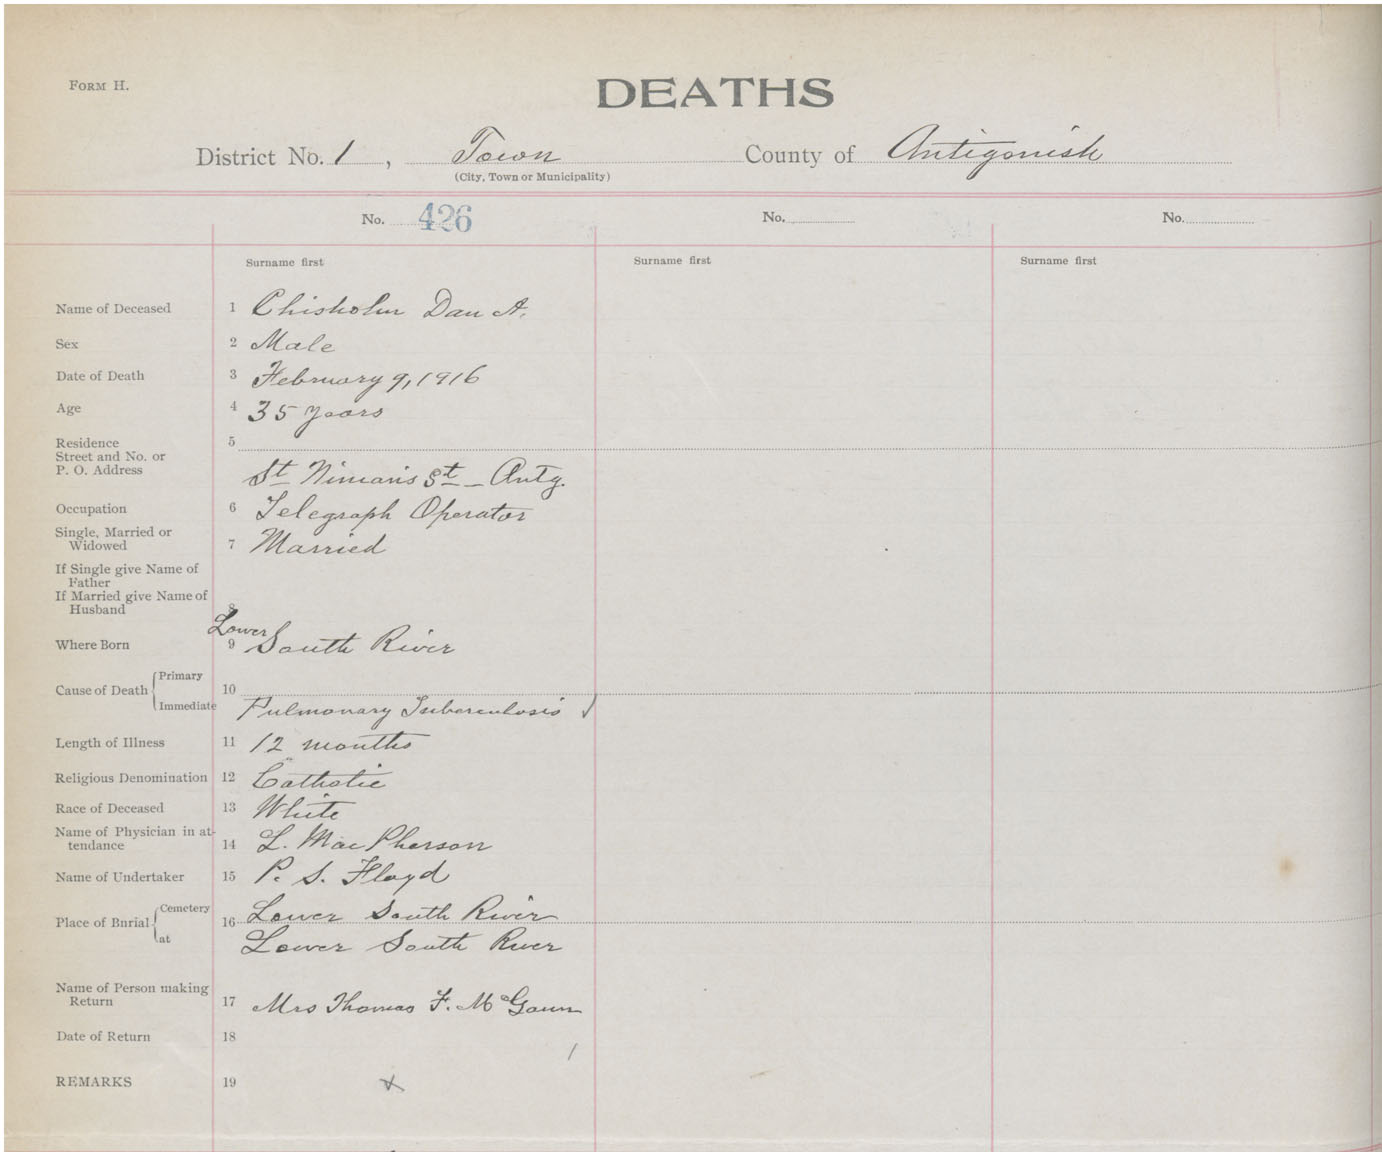 FORM H.
DEATHS
District No. 1 , Town County of Antigonish
(City, Town or Municipality)
No. 426 No. No.
Surname first Surname first Surname first
Name of Deceased 1 Chisholm Dan A.
Sex 2 Male
Date of Death 3 February 9, 1916
Age 4 35 years
Residence 5
Street and No. or
P. O. Address St Ninian's St - Antg.
Occupation 6 Telegraph Operator
Single, Married or
Widowed 7 Married
If Single give Name of
Father
If Married give Name of
Husband 8
Lower
Where Born 9 South River
Cause of Death Primary 10
Immediate Pulmonary Tuberculosis
Length of Illness 11 12 months
Religious Denomination 12 Catholic
Race of Deceased 13 White
Name of Physician in at-
tendance 14 L. MacPherson
Name of Undertaker 15 P. S. Floyd
Place of Burial Cemetery 16 Lower South River
at Lower South River
Name of Person making
Return 17 Mrs Thomas F. McGaun
Date of Return 18
REMARKS 19 x